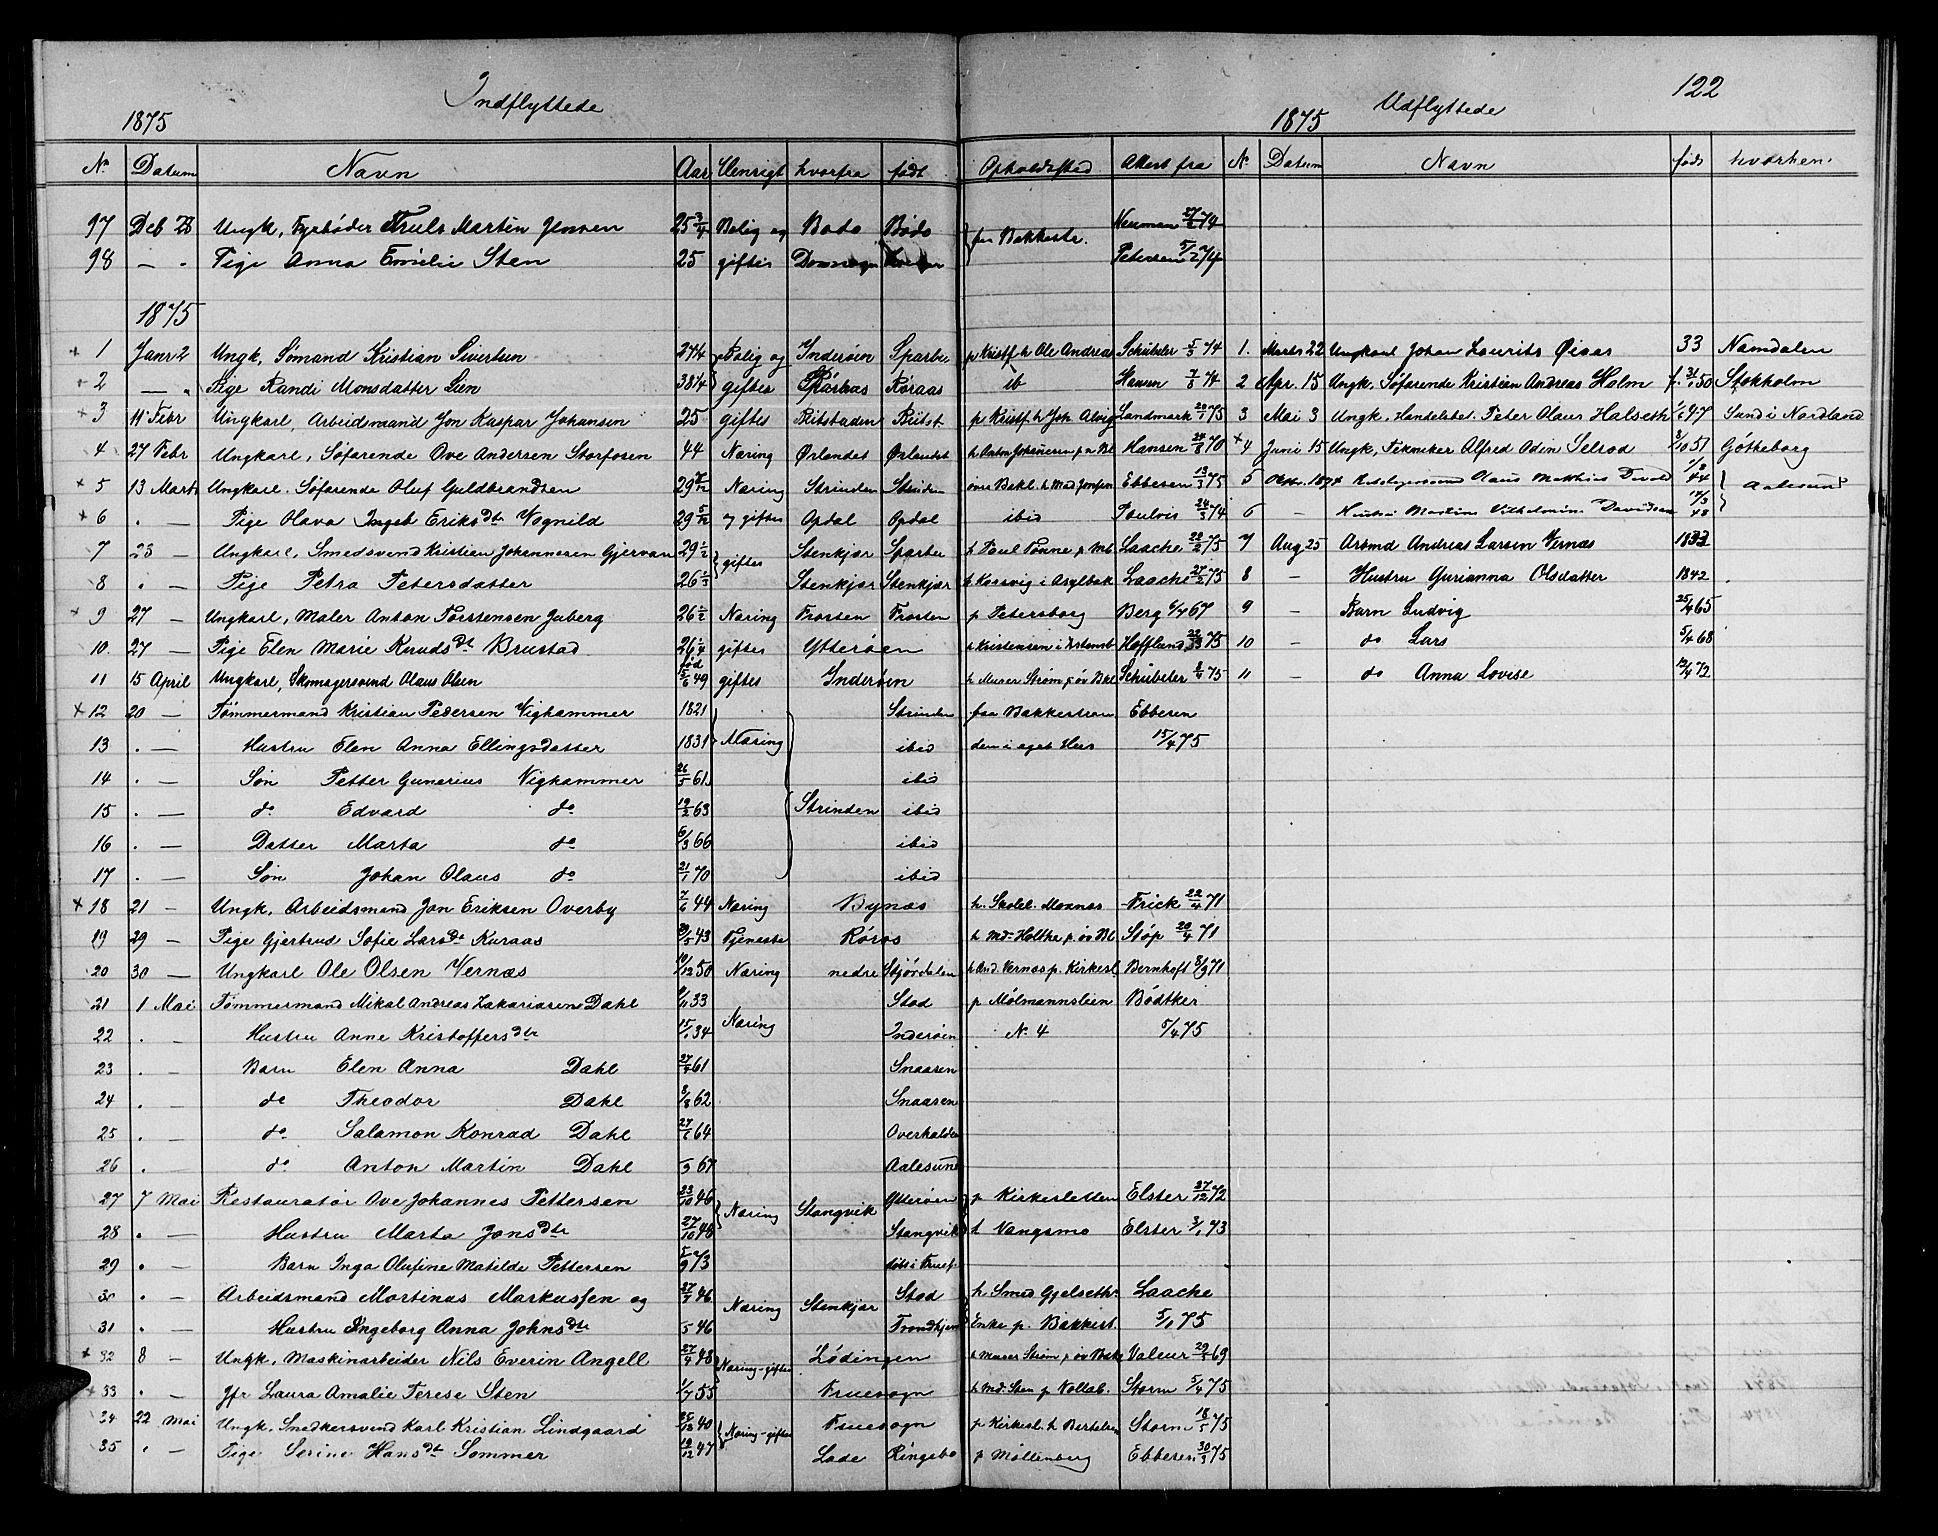 122
Indflyttede
Udflyttede
1875
1875
No Datum Navn Aar Henrigt hvorfra født Opholdssted Attest fra
97 Deb 28 Ungk, Fyrbøder Truls Martin Jensen 25 3/4 Bolig og Bodø Bodø paa Bakkestr. Neuman 27/6 74
98 — " Pige Anna Emilie Sten 25 giftes Petersen 5/2 74
1875
+ 1 Janr 2 Ungk, Sømand Kristian Sivertsen 27 1/4 Bolig og Inderøen Sparbu p Kristf. h Ole Andreas Schübeler 5/3 74
+ 2 — " Pige Randi Monsdatter Lun 38 1/4 giftes Røraas ib Hansen 7/8 74
+ 3 11' Febr Ungkarl, Arbeidsmand Jon Kaspar Johansen 25 giftes Bitstaden Bitst p Kristf. h Joh. Alvig Landmark 20/1 75
4 27 Febr Ungkarl, Søfarende Ove Andersen Storfosen 44 Næring Ørlandet Ørlandet Hansen 70
+ 5 13 Marts Ungkarl. Søfarende Oluf Guldbrandsen 29 Næring Strinden Strinden øvre Bakl. h Mad Jonsen Ebbesen 13/3 75
+ 6 . — Pige Olava Ingeb Eriksdt Vognild 29 5/12 og giftes Opdal Opdal ibid 24/3 74
7 23 — Ungkarl, Smedsvend Kristian Johannesen Gjervan 29 1/2 giftes Stenkjær Sparbu h Paul Tønne p Mb Laache 22/2 75
8 . — Pige Petra Petersdatter 26 1/3 Stenkjær Stenkjær h Korsvig i Asylbak Laache 27/2 75
+ 9 27 — Ungkarl, Maler Anton Torstensen Juberg 26 1/2 Næring Frosten Frosten p Petersborg Berg 6/4 67
10. 27 — Pige Elen Marie Knudsdt Brustad 26 1/4 giftes Ytterøen h Kristensen i Hofflund 75
11 15 April Ungkarl, Skomagersvend Olaus Olsen fød 5/6 49 giftes Inderøen h Murer Strøm p øv Bkl Schübeler 8/4 75
+ 12 20 — Tømmermand Kristian Pedersen Vighammer 1821 Næring Strinden paa Bakkestranden Ebbesen
13 . — Hustru Elen Anna Ellingsdatter 1831 ibid i eget Hus 15/4 75
14 . — Søn Petter Gunerius Vighammer 26/5 61 ibid
15 . — do Edvard do 19/2 63 Strinden ibid
16 . — Datter Marta do 6/3 66 ibid
17 . — Søn Johan Olaus do 21/1 70 ibid
+ 18 21 — Ungk, Arbeidsmand Jon Eriksen Overby 7/6 44 Næring Bynæs h. Skolel. Moxnes Frick 22/4 71
19 29 — Pige Gjertrud Sofie Larsdt Kuraas 20/5 43 Tjeneste Røros h Md. Holthe p øv Bl Støp 20/4 71
20 30 — Ungkarl Ole Olsen Vernæs 10/12 50 Næring nedre Stjørdalen h And. Vernæs p. Kirkesl Bernhoft 8/9 71
21 1 Mai Tømmermand Mikal Andreas Zakariasen Dahl 9/11 33 Næring Stod p Møllmannsleien Bødtker
22 . — Hustru Anne Kristoffersdtr 15/1 34 Inderøen No 4 5/4 75
23 . — Barn Elen Anna Dahl 61 Snaasen
24 . — do Theodor Dahl 8/8 62 Snaasen
25 . — do Salamon Konrad Dahl 27/6 64 Overhalden
26 . — do Anton Martin Dahl 67 Aalesund
27 7 Mai Restauratør Ove Johannes Pettersen 23/10 46 Næring Stangvik Ytterøen p Kirkesletten Elster 27/12 72
28 . — Hustru Marta Jonsdtr 27/10 46 Stangvik h Vangsmo Elster 3/1 73
29 . — Barn Inga Olufine Matilde Pettersen 5/9 73 født i Fruef.
30 . — Arbeidsmand Mortinus Markussen og 27/7 46 Næring Stenkjær Stod h Smed Gjelseths Laache
31 . — Hustru Ingeborg Anna Johnsdtr 46 Trondhjem Enke p. Bakkest. 5/1 75
+ 32 8 — Ungk, Maskinarbeider Nils Everin Angell 27/4 48 Næring-giftes Lødingen h Murer Strøm p øv Bak Valeur 29/5 69
+ 33 . — Jfr Laura Amalie Terese Sten 1/7 55 Fruesogn h Md. Sten p Vollab. Storm 5/4 75
34 22 Mai Ungk, Snedkersvend Karl Kristian Lindgaard 25/12 40 Næring-giftes Fruesogn p Kirkesl. h Bertelsen Storm 18/5 75
35 . — Pige Serine Hansdt Sommer 10/12 47 Lade Ringebo p Møllenberg Ebbesen 30/3 75
No Datum Navn født hvorhen
1. Marts 22 Ungkarl Johan Laurits Øiaas 33 Namdalen
2 Apr. 15 Ungk, Søfarende Kristian Andreas Holm f. 31/1 50 Stokholm
3 Mai 3 Ungk, Handelsbet. Peter Olaus Halseth 47 Sund i Nordland
+ 4 Juni 15 Ungk, Tekniker Alfred Odin Selrod 3/10 51 Gøtheborg
5 1874 Claus Matthias 44 Aalesund
6 — Hustru Martine Vilhelmine Davidsen 17/3 48
7 Aug 25 Arbmd Andreas Larsen Vernæs 1833
8 — Hustru Gurianna Olsdatter 1842
9 — Barn Ludvig 25/4 65
10 — do Lars 5/4 68
11 — do Anna Lovise 12/4 72